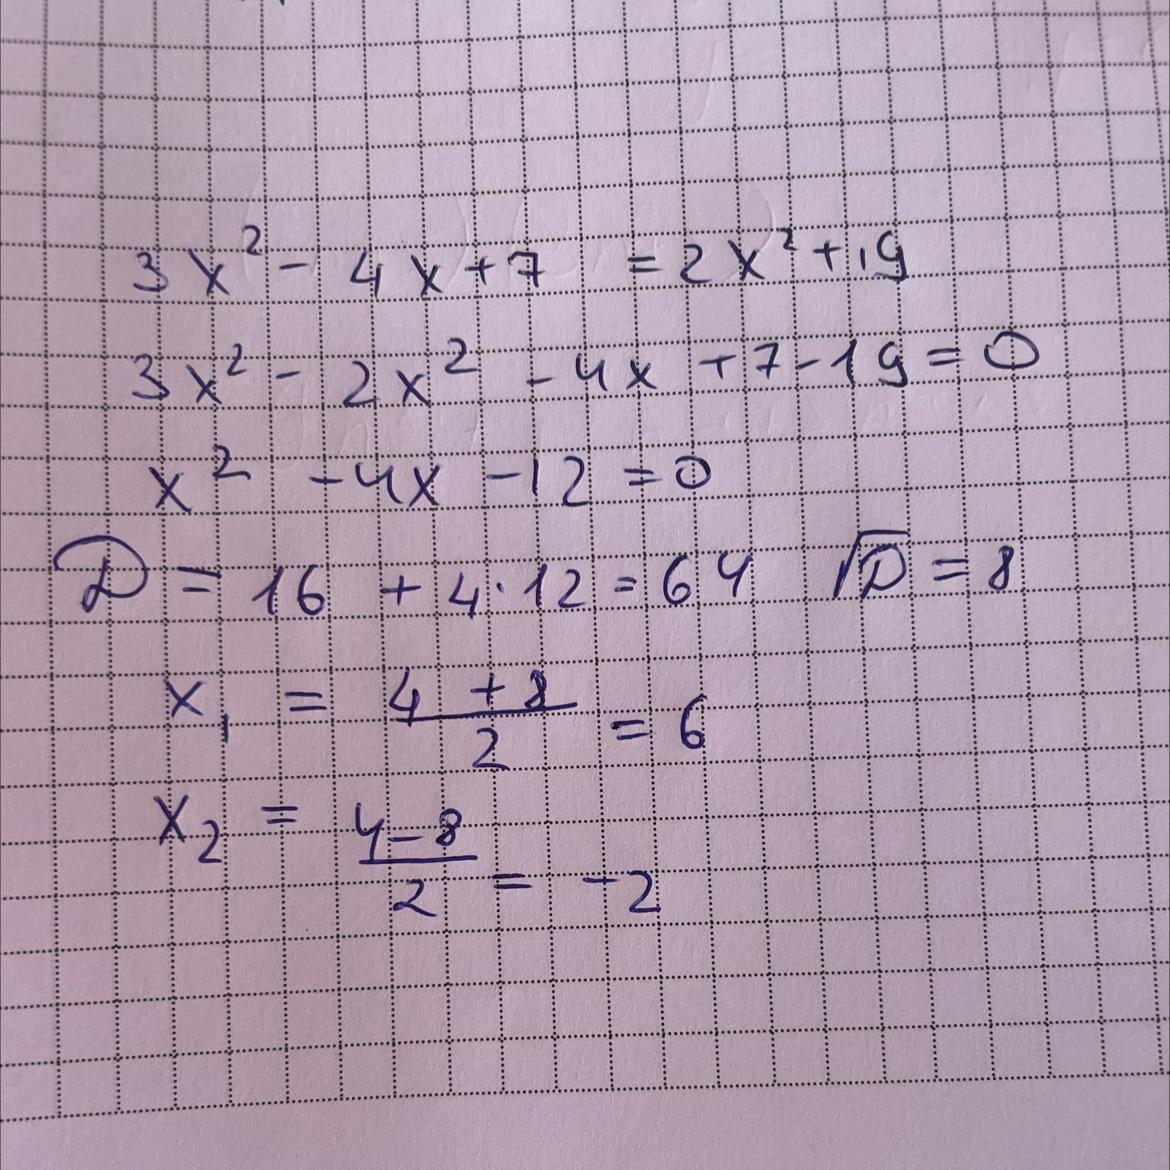 3x² - 4x + 7 = 2x² + 19
3x² - 2x² - 4x + 7 - 19 = 0
x² - 4x - 12 = 0
D = 16 + 4·12 = 64 √D = 8
x₁ = (4 + 8)/2 = 6
x₂ = (4 - 8)/2 = -2